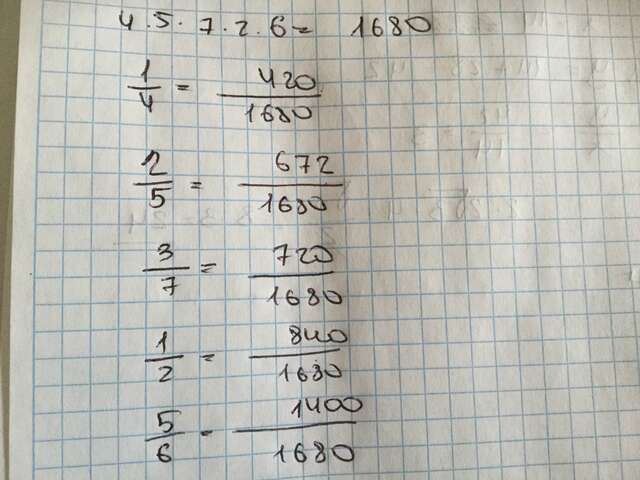 4.5.7.2.6= 1680
1/4 = 420/1680
2/5 = 672/1680
3/7 = 720/1680
1/2 = 840/1680
5/6 = 1400/1680